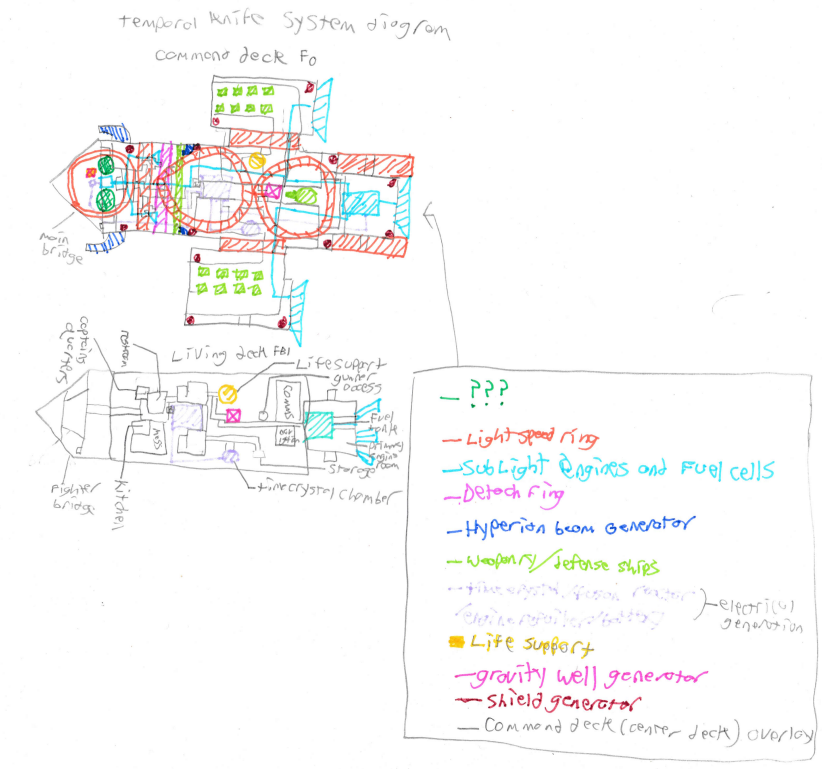 temporal knife system diagram
command deck F0
main
bridge
captains
quarters
restroom
Living deck FB1
Lifesuport
gunner
access
comms
Fuel
engine
room
storage
timecrystal chamber
Fighter
bridge
Kitchen
???
Lightspeed ring
Sublight engines and Fuel cells
Detach ring
Hyperion beam Generator
weaponry/defense ships
electrical
generation
Life support
gravity well generator
shield generator
Command deck (center deck) overlay